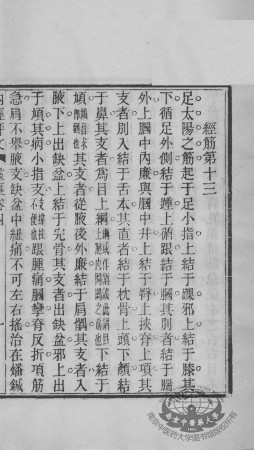 經筋第十三
足太陽之筋起于足小指上結于踝邪上結于膝其
下循足外側結于踵上循跟結于膕其別者結于腨
外上膕中內廉與膕中并上結于臀上挾脊上項其
支者別入結于舌本其直者結于枕骨上頭下顏結
于鼻其支者爲目上綱下結于
頄其支者從腋後外廉結于肩髃其支者入
腋下上出缺盆上結于完骨其支者出缺盆邪上出
于頄其病小指支跟腫痛膕攣脊反折項筋
急肩不舉腋支缺盆中紐痛不可左右搖治在燔鍼
南京中医药大学图书馆版权所有